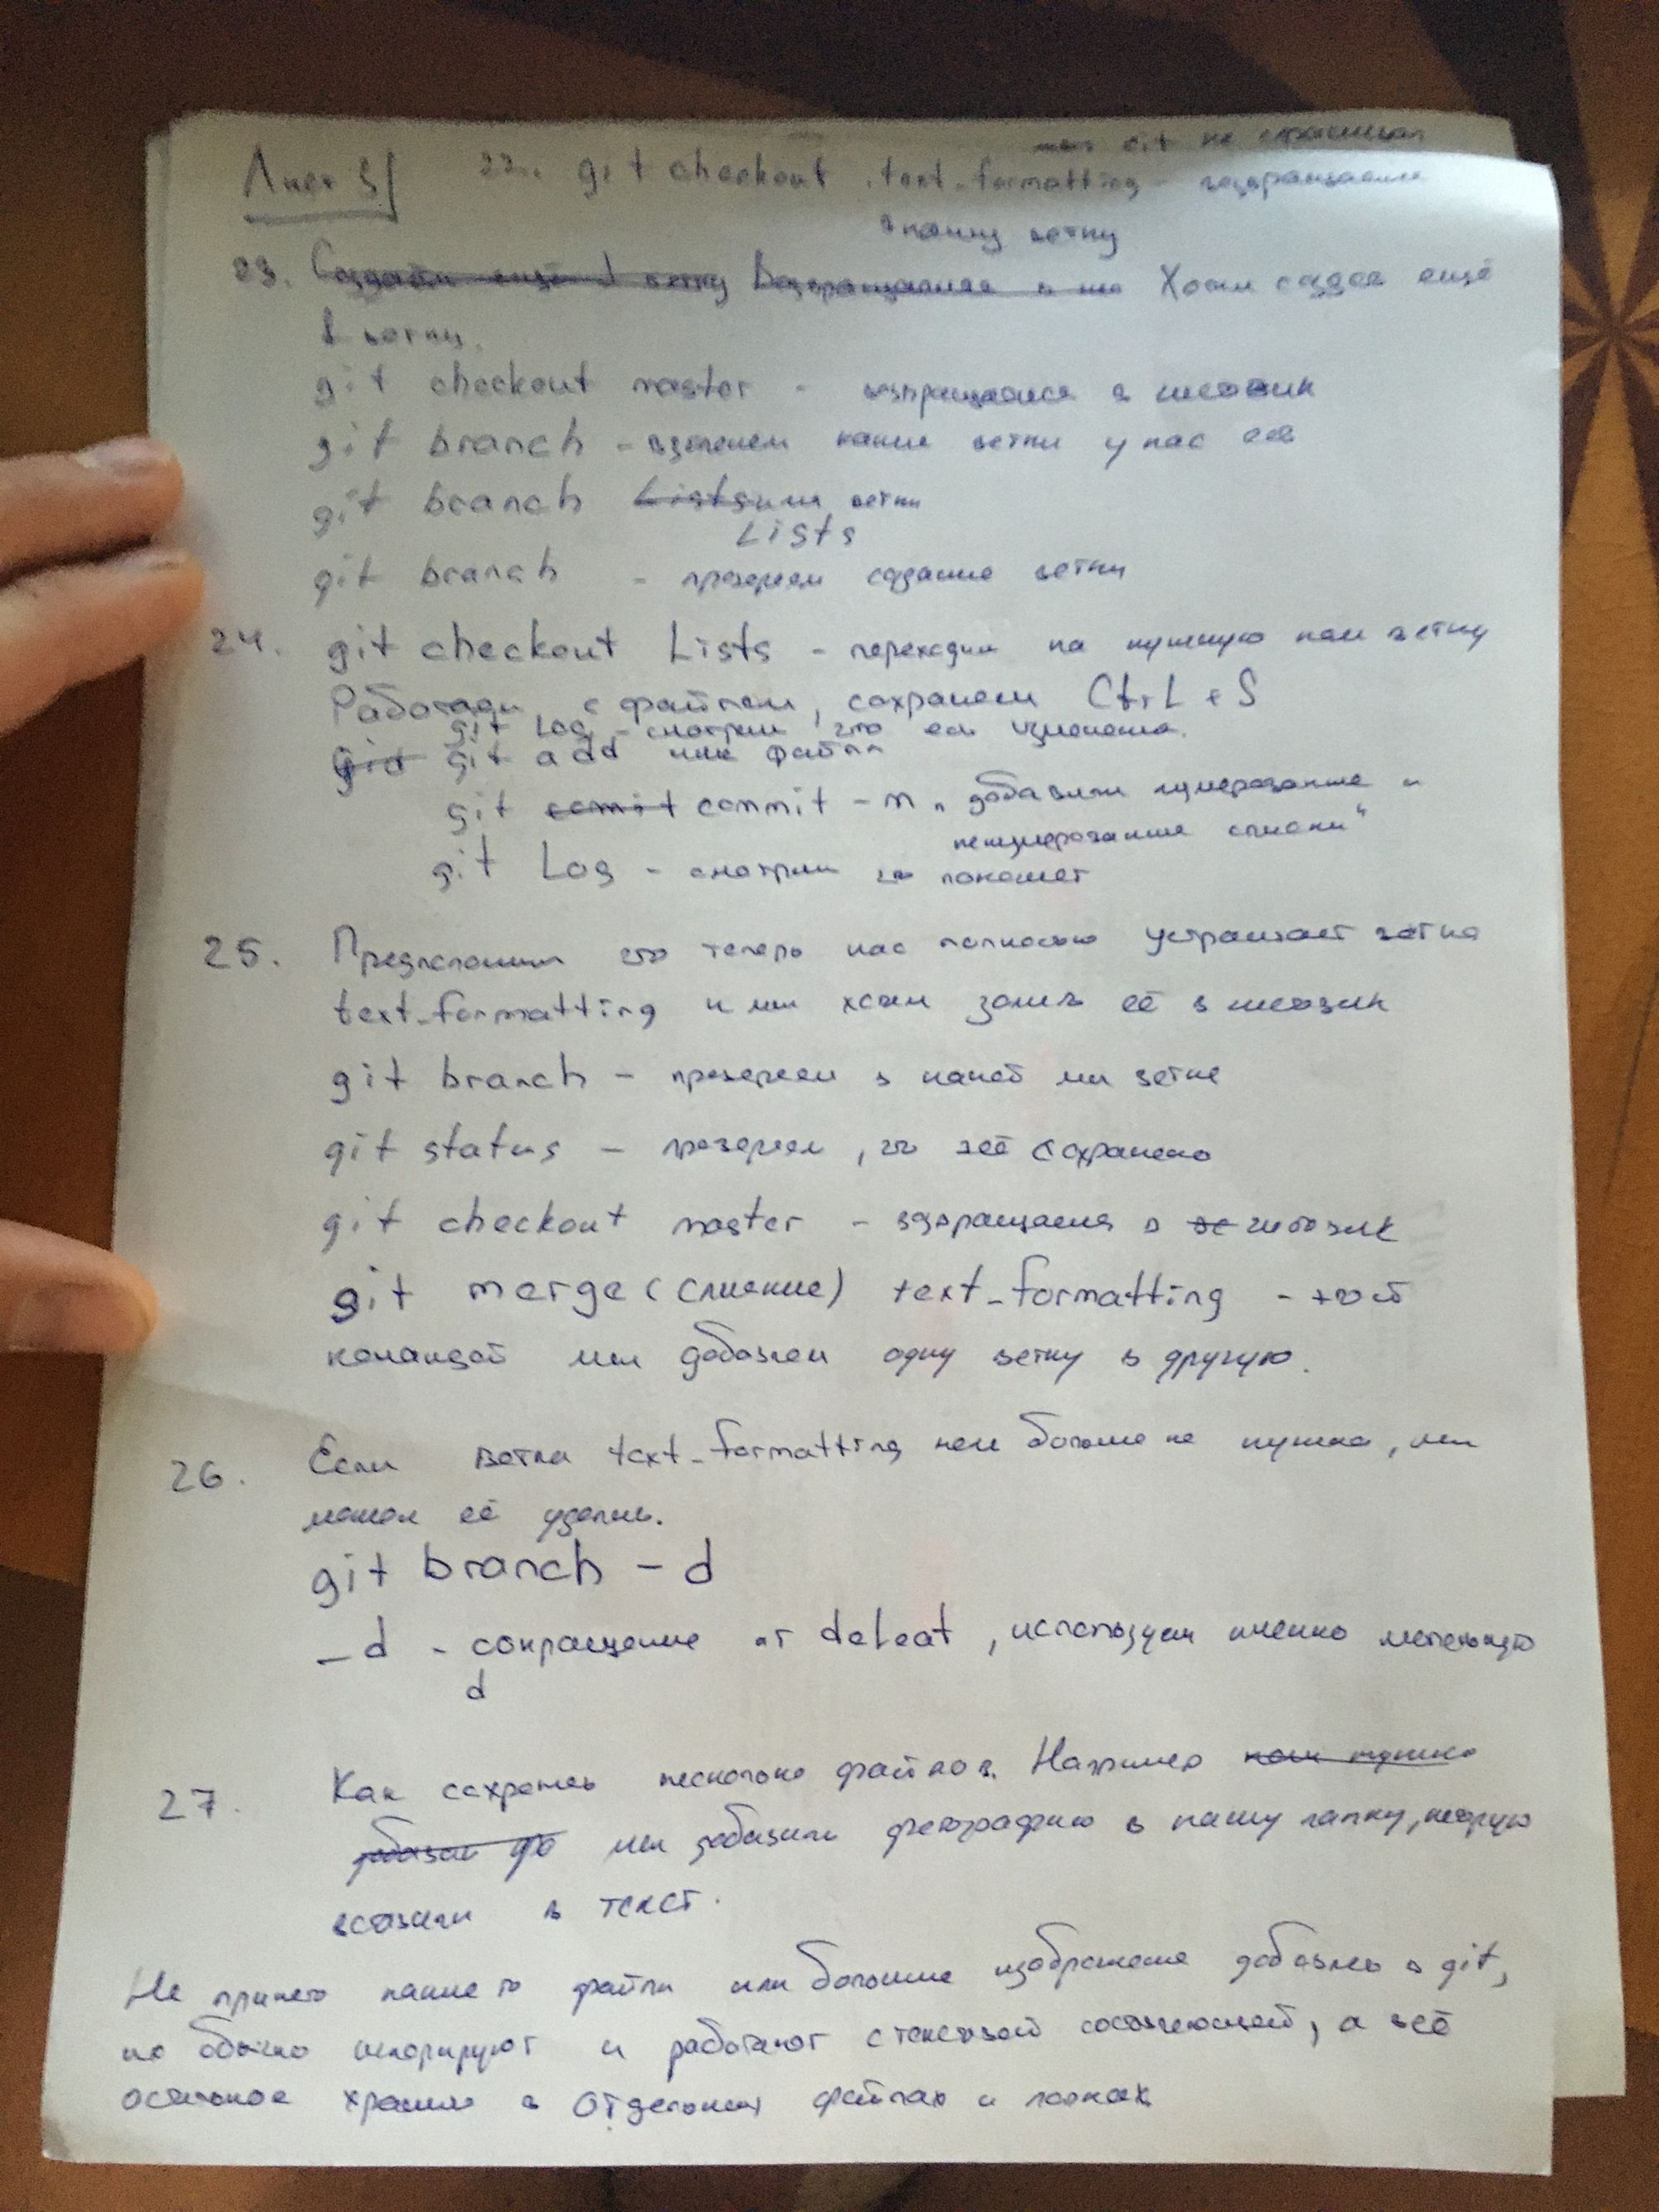 Лист 5
22. git checkout text_formatting - возвращаемся
в нашу ветку
23. Хотим создать ещё
1 ветку.
git checkout master - возвращаемся в
git branch - какие ветки у нас есть
git branch имя ветки
Lists
git branch - проверяем создание ветки
24. git checkout Lists - переходим на нужную нам ветку
Работаем с файлом, сохраняем Ctrl + S
git Log - смотрим что есть изменения.
git add имя файла
git commit - m „ добавили нумерованные и
ненумерованные списки“
git Log - смотрим что покажет
25. Предположим что теперь нас полностью устраивает ветка
text_formatting и мы хотим залить её в
git branch - проверяем в какой мы ветке
git status - проверяем, что всё сохранено
git checkout master - возвращаемся в
git merge (слияние) text_formatting - этой
командой мы добавляем одну ветку в другую.
26. Если ветка text_formatting нам больше не нужна, мы
можем её удалить.
git branch - d
_ d - сокращение от deleat, используем именно маленькую
d
27. Как сохранять несколько файлов. Например
мы добавили фотографию в нашу папку, которую
вставили в текст.
Не принято какие то файлы или большие изображения добавлять в git,
их обычно игнорируют и работают с текстовой составляющей, а всё
остальное храним в отдельных файлах и папках